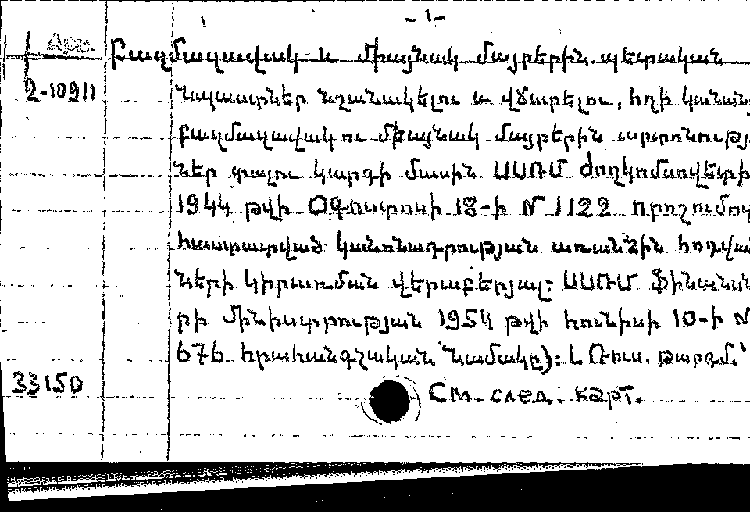 -1-
Բազմազավակ և միայնակ մայրերին պետական
2-10911 նպաստներ նշանակելու և վճարելու, հղի կանանց
բազմազավակ ու միայնակ մայրերին արտոնությ
ներ տալու կարգի մասին ՍՍՌՄ Ժողկոմսովետի
1944 թվի Օգոստոսի 18-ի № 1122 որոշումով
հաստատված կանոնադրության առանձին հոդված
ների կիրառման վերաբերյալ: ՍՍՌՄ Ֆինանսն
րի Մինիստրության 1954 թվի հունիսի 10-ի №
676 հրահանգչական նամակը): Ռուս. թարգմ.
33150 См. след. карт.